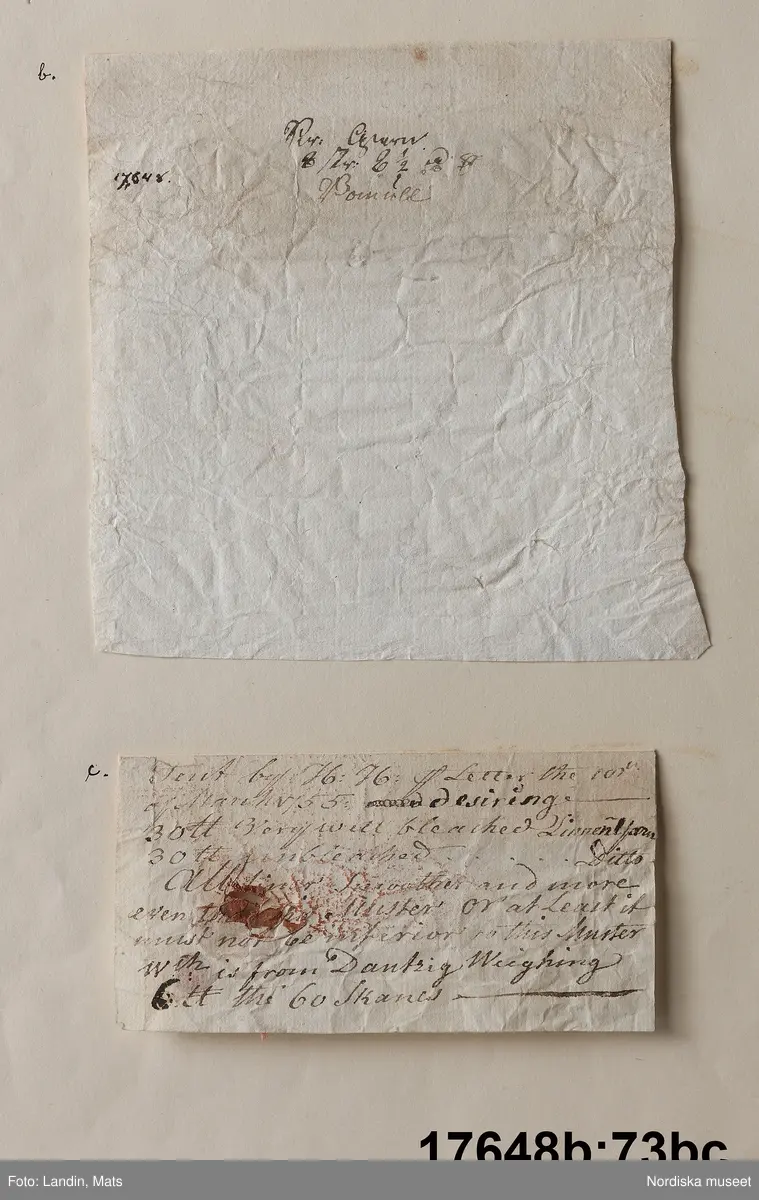 b.
17648.
Bomull
c.
Sent by H: H: Letter the
of March 1755: desiring
30 tt Very well bleached Linnen Yarn
30 tt unbleached . . . . Ditto
All finer Smoother and more
even this Muster or at Least it
must not be inferior to this Muster
Wch is from Dantzig Weighing
6 tt the 60 Skanes
17648b:73bc
Foto: Landin, Mats
Nordiska museet